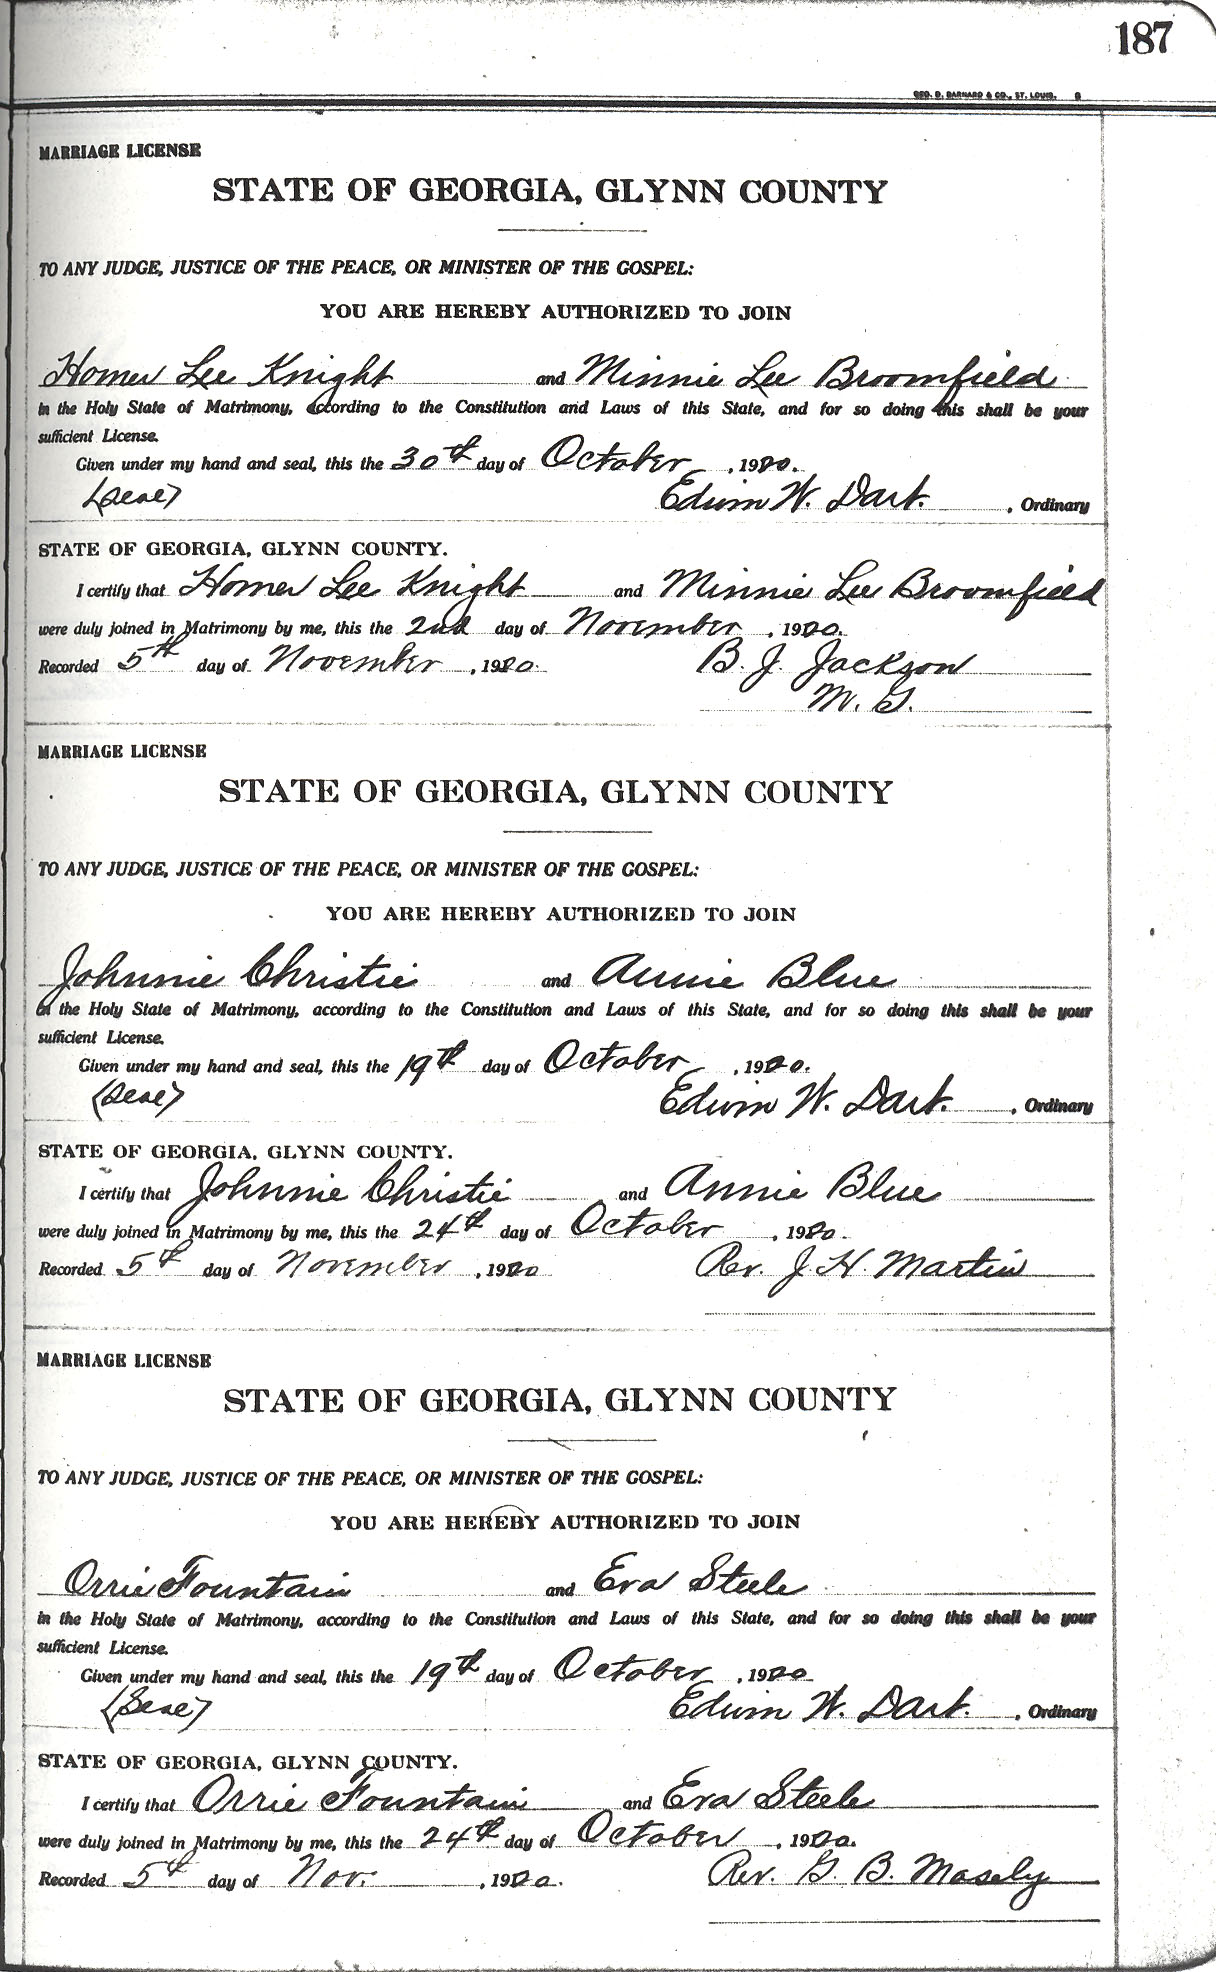 187
GEO. D. BARNARD & CO., ST. LOUIS.
MARRIAGE LICENSE
STATE OF GEORGIA, GLYNN COUNTY
TO ANY JUDGE, JUSTICE OF THE PEACE, OR MINISTER OF THE GOSPEL:
YOU ARE HEREBY AUTHORIZED TO JOIN
Homer Lee Knight and Minnie Lee Broomfield
in the Holy State of Matrimony, according to the Constitution and Laws of this State, and for so doing this shall be your
sufficient License.
Given under my hand and seal, this the 30th day of October, 1920.
(Seal) Edwin W. Dart. , Ordinary
STATE OF GEORGIA, GLYNN COUNTY.
I certify that Homer Lee Knight and Minnie Lee Broomfield
were duly joined in Matrimony by me, this the 2nd day of November, 1920.
Recorded 5th day of November, 1920. B. J. Jackson
M. G.
MARRIAGE LICENSE
STATE OF GEORGIA, GLYNN COUNTY
TO ANY JUDGE, JUSTICE OF THE PEACE, OR MINISTER OF THE GOSPEL:
YOU ARE HEREBY AUTHORIZED TO JOIN
Johnnie Christie and Annie Blue
in the Holy State of Matrimony, according to the Constitution and Laws of this State, and for so doing this shall be your
sufficient License.
Given under my hand and seal, this the 19th day of October, 1920.
(Seal) Edwin W. Dart. , Ordinary
STATE OF GEORGIA, GLYNN COUNTY.
I certify that Johnnie Christie and Annie Blue
were duly joined in Matrimony by me, this the 24th day of October, 1920.
Recorded 5th day of November, 1920 Rev. J. H. Martin
MARRIAGE LICENSE
STATE OF GEORGIA, GLYNN COUNTY
TO ANY JUDGE, JUSTICE OF THE PEACE, OR MINISTER OF THE GOSPEL:
YOU ARE HEREBY AUTHORIZED TO JOIN
Orrie Fountain and Eva Steele
in the Holy State of Matrimony, according to the Constitution and Laws of this State, and for so doing this shall be your
sufficient License.
Given under my hand and seal, this the 19th day of October, 1920
(Seal) Edwin W. Dart. , Ordinary
STATE OF GEORGIA, GLYNN COUNTY.
I certify that Orrie Fountain and Eva Steele
were duly joined in Matrimony by me, this the 24th day of October, 1920.
Recorded 5th day of Nov., 1920. Rev. G. B. Masely